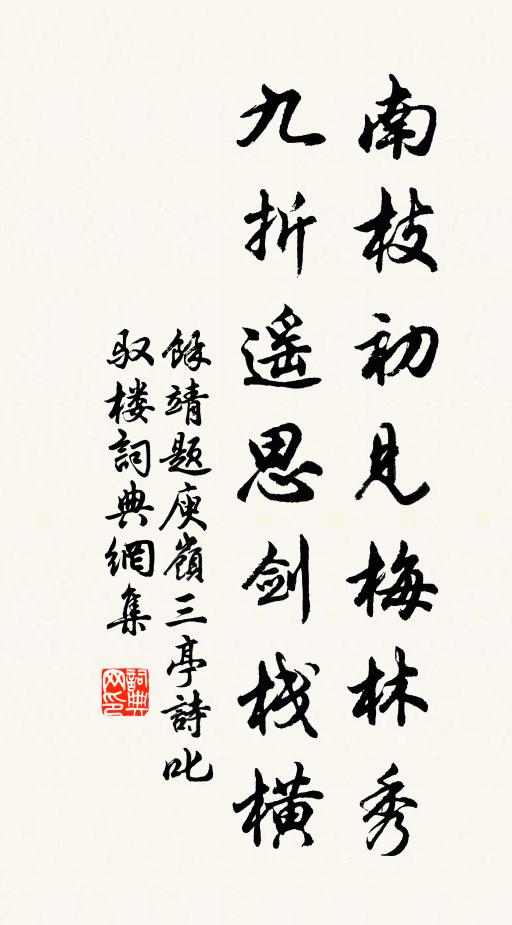 南枝初見梅林秀
九折遥思剑栈横
餘靖题庾嶺三亭詩叱
驭楼詞典網集
詞典网印